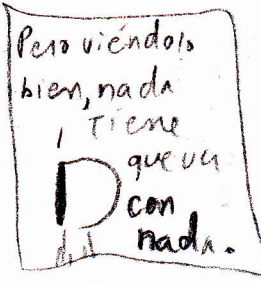 Pero viéndolo
bien, nada
tiene
que ver
con
nada.